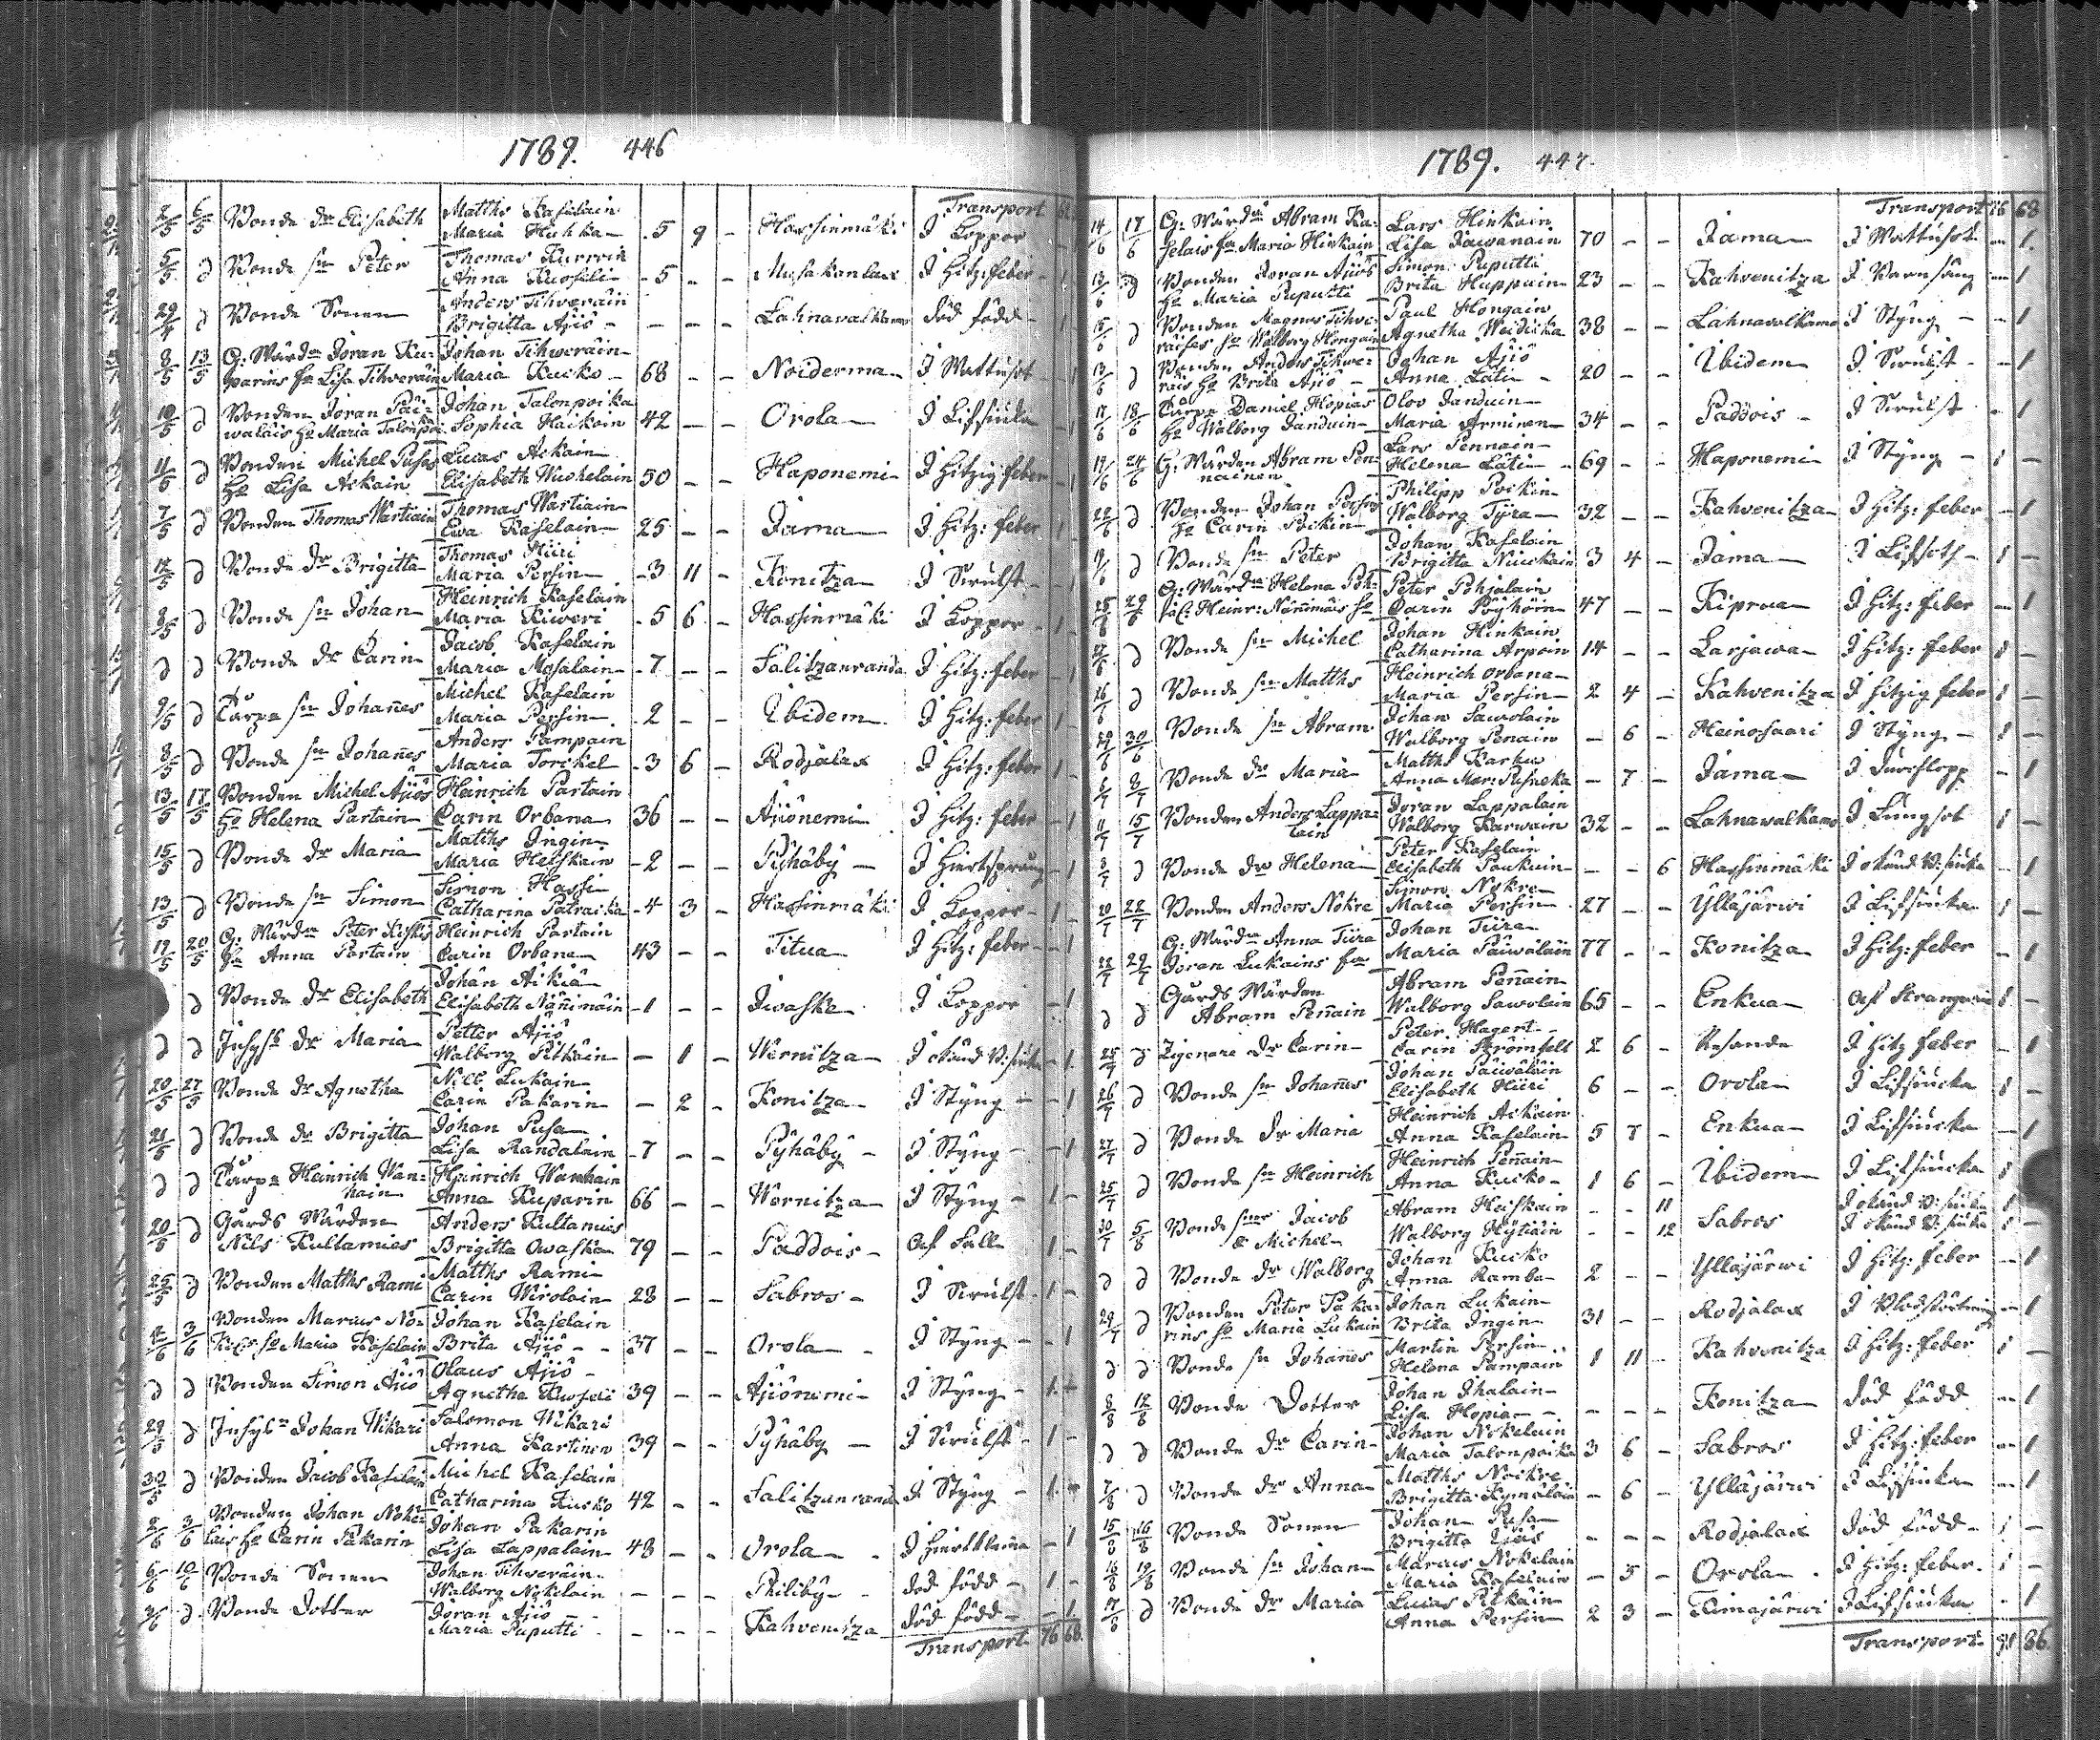 1789. 446
Transport
2/5 6/5 Bonde dr Elisabeth Matths Kaselain
Maria Huhka - 5 9 - Hassinmäki J Koppor
5/5 d Bonde sn Peter Thomas Kurwin
Anna Kuoseli - 5 - - Mosakanlax J Hitz: feber - 1
29/4 d Bonde Sonen Anders Tihwerain
Brigitta Ajiö - - - - Lahnawalkama död född - 1
8/5 13/5 G: Wärdn Joran Ku- Johan Tihwerain
parins ho Lisa Tihwerain Maria Kucko - 68 - - Noiderma J Mattuhet - 1
10/5 d Bonden Joran Päi- Johan Talonpoika
waläis ho Maria Talonpoi Sophia Haikoin 42 - - Orola J Lifsiuka
4/5 d Bonden Michel Pusas Lucas Askain
ho Lisa Askain Elisabeth Muhelain 50 - - Haponemi J Hitzig feber - 1
7/5 d Bonden Thomas Wartiain Thomas Wartiain
Ewa Kaselain 25 - - Jama J Hitz: feber 1 -
12/5 d Bonde dr Brigitta Thomas Hiiri
Maria Persin - 3 11 - Konitza J Swulst - 1
8/5 d Bonde sn Johan Heinrich Kaselain
Maria Kiweri - 5 6 - Hassinmäki J Koppor - 1 -
d d Bonde dr Carin Jacob Kaselain
Maria Mosalain - 7 - - Salitzanranda J Hitz: feber - 1
9/5 d Torpe sn Johañes Michel Kaselain
Maria Persin - 2 - - Ibidem J Hitz: feber 1 -
8/5 d Bonde sn Johañes Anders Pampain
Maria Torckel - 3 6 - Rodjalax J Hitz: feber 1 -
13/5 17/5 Bonden Michel Ajiös Heinrich Partain
ho Helena Partain Carin Orbana 36 - - Ajiönemi J Hitz: feber - 1
15/5 d Bonde dr Maria Matths Ingin
Maria Heiskain - 2 - - Pyhäby - J Hiertsprang - 1
13/5 d Bonde sn Simon Simon Hassi
Catharina Patracka - 4 3 - Hassinmäki J Koppor - 1 -
19/5 20/5 G: Wärdn Peter Heinrich Partain
ho Anna Partain Carin Orbana 43 - - Titua J Hitz: feber - - 1
d Bonde dr Elisabeth Johan Aikiä
Elisabeth Näñimäin - 1 - - Iwaska J Koppor - 1
d d Inhyse dr Maria Petter Ajiö
Walborg Pitkäin - 1 - Wernitza J okänd B: siuka - 1
20/5 27/5 Bonde dr Agnetha Nill Lukain
Carin Pakarin - 2 - Konitza J Styng - - 1
21/5 d Bonde dr Brigitta Johan Pusa
Lisa Randalain - 7 - - Pyhäby - J Styng - - 1
d d Torpn Heinrich Wan- Heinrich Wanhain
hain Anna Kuparin 66 - - Wernitza J Styng - 1 -
20/5 d Gårds Wärden Anders Kultamies
Nils Kultamies Brigitta Owaska 79 - - Paddois - Af Fall 1 -
25/5 d Bonden Matths Rami Matths Rami
Carin Wirolain 28 - - Sabros - J Swulst - 1 -
2/6 3/6 Bonden Marcus No- Johan Kaselain
ho Maria Kaselain Brita Ajiö - - 37 - - Orola - J Styng - - 1
d d Bonden Simon Ajiö Olaus Ajiö -
Agnetha Kuoseli 39 - - Ajiönemi - J Styng - 1 -
29/5 d Inhysn Johan Nikari Salomon Nikari
Anna Kartinen 39 - - Pyhäby - J Swulst - 1 -
30/5 d Bonden Jacob Kaselain Michel Kaselain
Catharina Kucko 42 - - Salitzanranda J Styng - 1 -
2/6 3/6 Bonden Johan Noke- Johan Pakarin
lais ho Carin Pakarin Lisa Lappalain 48 - - Orola - J Hiertklema - 1
6/6 10/6 Bonde Sonen Johan Tihwerain
Walborg Nokelain - - - Philiby - död född - 1 -
3/6 d Bonde Dotter Joran Ajiö
Maria Puputti - - - Kahvenitza död född - - 1
Transport 76 68
1789. 447.
Transport 76 68
14/6 17/6 G: Wärdn Abram Ka- Lars Hinkain
selais ho Maria Hinkain Lisa Jawanain 70 - - Jama J Mattuhet - 1
13/6 d Bonden Joran Ajiös Simon Puputti
ho Maria Puputti Brita Huppuin 23 - - Kahvenitza J Barnsäng - 1
15/6 d Bonden Magnus Tihwe- Paul Hongain
raises ho Walborg Hongain Agnetha Weidicka 38 - - Lahnawalkama J Styng - - 1
13/6 d Bonden Anders Tihwe- Johan Ajiö
rais ho Brita Ajiö - Anna Läti - 20 - - Ibidem J Swulst - 1
17/6 18/6 Torpn Daniel Hopias Olov Janduin
ho Walborg Janduin Maria Arminen 34 - - Paddois - J Swulst - 1
19/6 24/6 G: Wärden Abram Pen- Lars Pennain
nainen Helena Läti - 69 - - Haponemi J Styng - 1 -
22/6 d Bonden Johan Persins Philipp Poikin
ho Carin Poikin Walborg Tyra 32 - - Kahvenitza J Hitz: feber - 1
19/6 d Bonde sn Peter Johan Kaselain
Brigitta Niuckain 3 4 - Jama - J Lifsoth - 1 -
25/6 29/6 G: Wärdn Helena Poh- Peter Pohjalain
Heinr: Nemmäis ho Carin Pöyhöin 47 - - Kiprua J Hitz: feber - 1
27/6 d Bonde sn Michel Johan Hinkain
Catharina Arpoin 14 - - Larjawa J Hitz: feber 1 -
26/6 d Bonde sn Matths Heinrich Orbana
Maria Persin 2 4 - Kahvenitza J Hitzig feber 1 -
29/6 30/6 Bonde sn Abram Johan Sawolain
Walborg Penain - 6 - Heinosaari J Styng - 1 -
6/7 8/7 Bonde dr Maria Matths Karhu
Anna Mar: Pusneka - 7 - Jama J Durchlopp - 1
11/7 15/7 Bonden Anders Lappa- Joran Lappalain
lain Walborg Karwain 32 - - Lahnawalkama J Lungsot 1 -
8/7 d Bonde dr Helena Peter Kaselain
Elisabeth Paukuin - - 6 Hassinmäki J okänd B: siuka - 1
20/7 22/7 Bonden Anders Nokre Simon Nokre
Maria Persin 27 - - Ylläjärwi J Lifsiuka 1 -
28/7 29/7 G: Wärdn Anna Tiira Johan Tiira
Joran Lukains ho Maria Päiwäläin 77 - - Konitza J Hitz: feber - 1
d d Gårds Wärden Abram Peñain
Abram Peñain Walborg Sawolain 65 - - Enkua Af Stranguri 1 -
25/7 d Zigenare dr Carin Peter Hagert -
Carin Strömfelt 2 6 - Resande J Hitz feber - 1
26/7 d Bonde sn Johañes Johan Päiwäläin
Elisabeth Hiiri 6 - - Orola J Lifsiucka 1 -
27/7 d Bonde dr Maria Heinrich Askain
Anna Kaselain 5 7 - Enkua J Lifsiucka - 1
25/7 d Bonde sn Heinrich Heinrich Peñain
Anna Kucko - 1 6 - Ibidem J Lifsiucka 1
30/7 5/8 Bonde söner Jacob Abram Heiskain - - 11 Sabros J okänd B: siuka 1
& Michel Walborg Hytiäin - - 12 J okänd B: siuka 1 -
d d Bonde dr Walborg Johan Kucko
Anna Ramba 2 - - Ylläjärwi J Hitz: feber - 1
29/7 d Bonden Peter Paka- Johan Lukain
rins ho Maria Lukain Brita Ingin 31 - - Rodjalax J Blodstörtning - 1
d d Bonde sn Johañes Martin Persin
Helena Pampain 1 11 - Kahvenitza J Hitz: feber 1 -
8/8 12/8 Bonde Dotter Johan Ihalain
Lisa Hopia - - - - - Konitza död född - 1
d d Bonde dr Carin Johan Nokelain
Maria Talonpoika 3 6 - Sabros J Hitz: feber - 1
7/8 d Bonde dr Anna Matths Nockre
Brigitta Kymäläin - 6 - Ylläjärwi J Lifsiucka - 1
15/8 16/8 Bonde Sonen Johan Pusa
Brigitta - - - Rodjalax död född - 1 -
16/8 19/8 Bonde sn Johan Marcus Nokelain
Maria Kaselain - 5 - Orola J Hitz: feber. 1 -
17/8 d Bonde dr Maria Lucas Pitkäin
Anna Persin 2 3 - Kimajärwi J Lifsiucka - 1
Transport 91 86